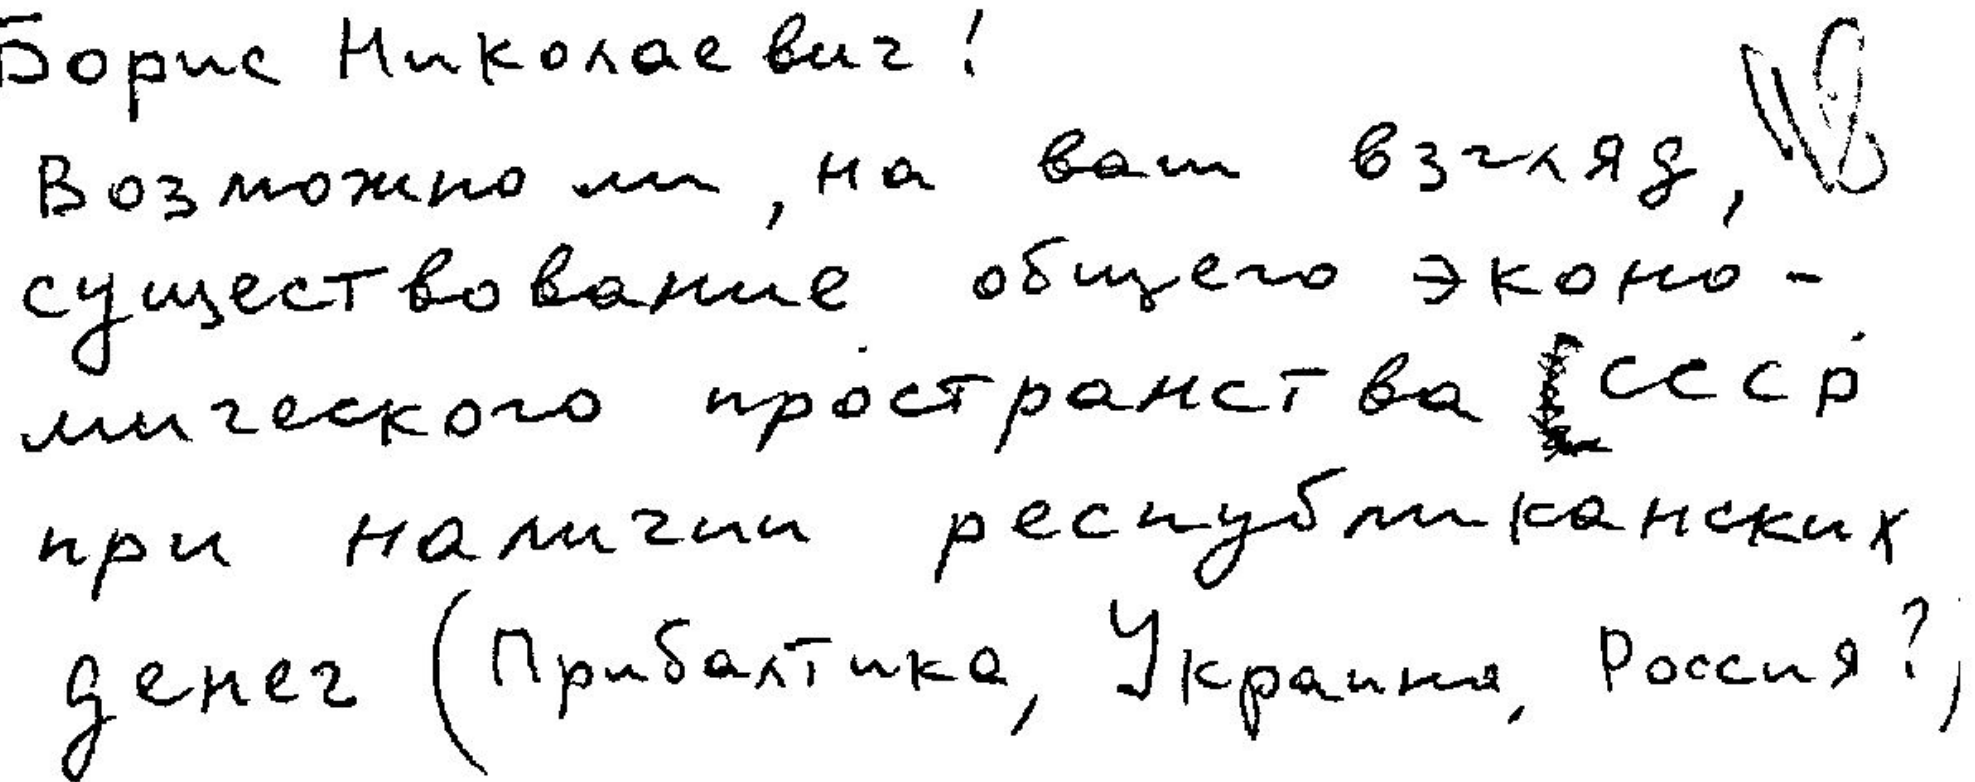 Борис Николаевич!
Возможно ли, на ваш взгляд,
существование общего эконо-
мического пространства СССР
при наличии республиканских
денег (Прибалтика, Украина, Россия?)